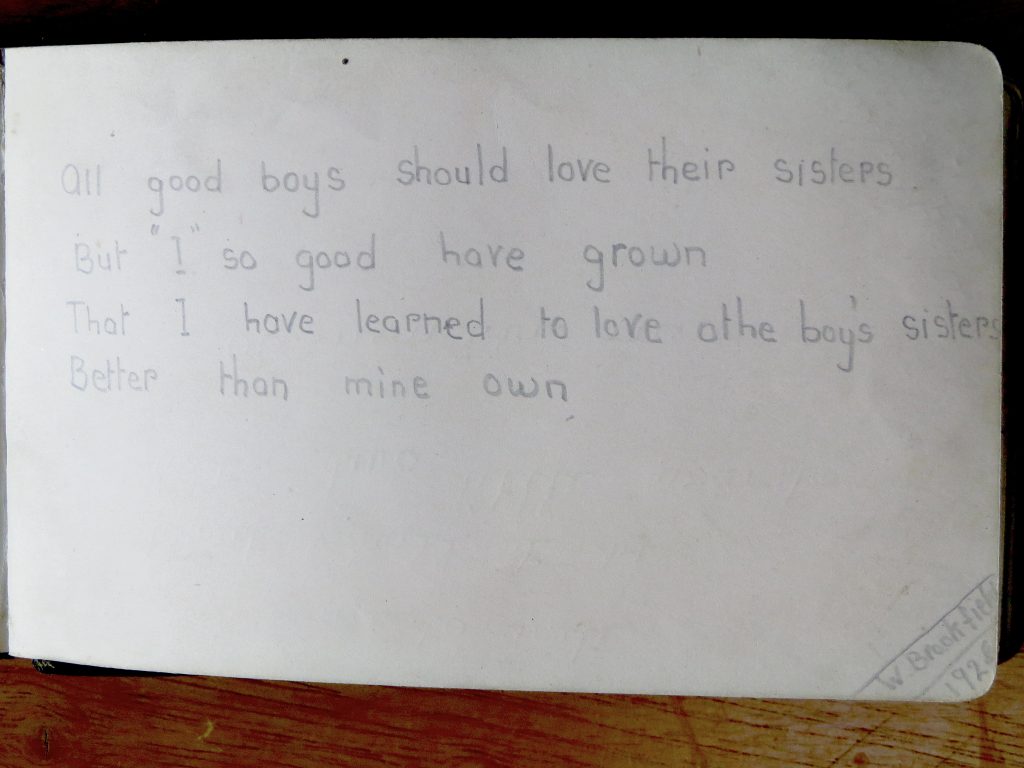 All good boys should love their sisters.
But "I" so good have grown
That I have learned to love othe boy's sisters
Better than mine own,
W. Brookfield